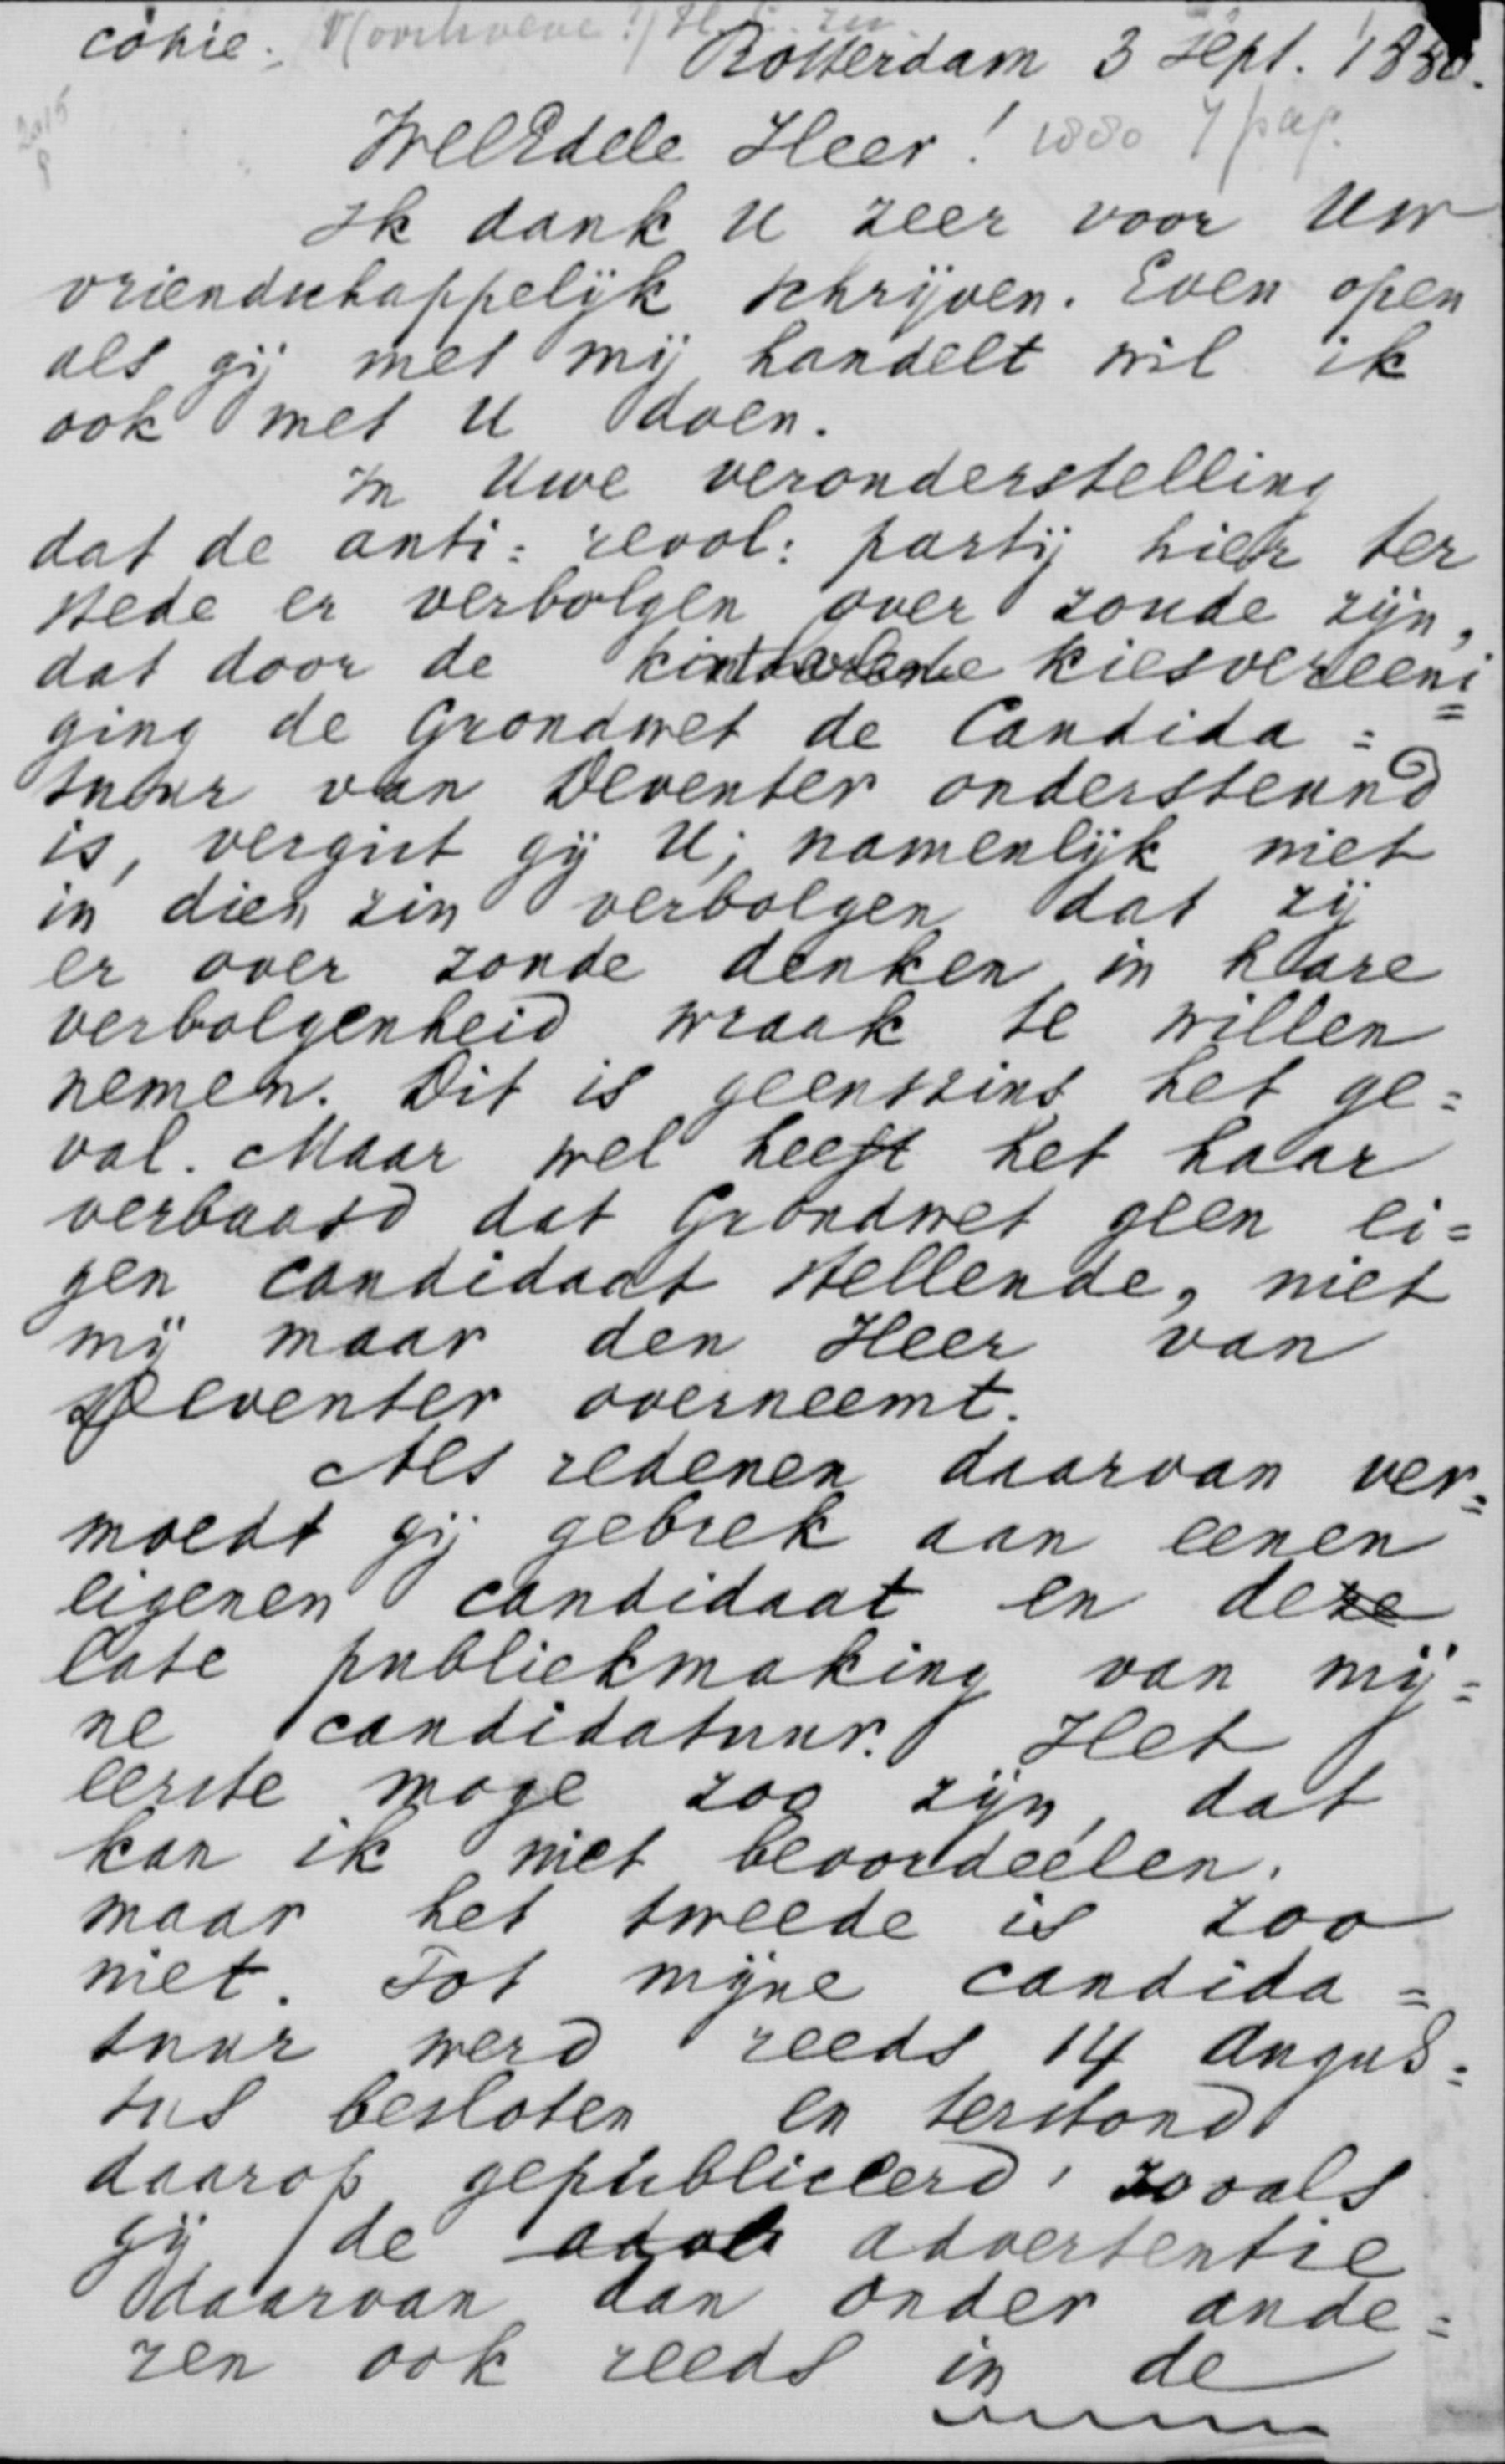 copie.
Rotterdam 3 Sept. 1880.
WelEdele Heer! 1880 4 pag.
Ik dank U zeer voor Uw
vriendschappelijk schrijven. Even open
als gij met mij handelt wil ik
ook met U doen.
In Uwe veronderstelling
dat de anti= revol: partij hier ter
stede er verbolgen over zoude zijn,
dat door de kiesvereeni
ging de Grondwet de Candida=
tuur van Deventer ondersteund
is, vergist gij U; namenlijk niet
in dien zin verbolgen dat zij
er over zonde denken in hare
verbolgenheid wraak te willen
nemen. Dit is geenszins het ge=
val. Maar wel heeft het haar
verbaasd dat Grondwet geen ei=
gen candidaat stellende, niet
mij maar den Heer van
Deventer overneemt.
Als redenen daarvan ver=
moedt gij gebrek aan eenen
eigenen candidaat en deze
late publiekmaking van mij=
ne candidatuur. Het
eerste moge zoo zijn, dat
kan ik niet beoordeelen.
maar het tweede is zoo
niet. Tot mijne candida=
tuur werd reeds 14 Augus=
tus besloten en terstond
daarop gepubliceerd, zooals
gij de advertentie
daarvan dan onder ande=
ren ook reeds in de